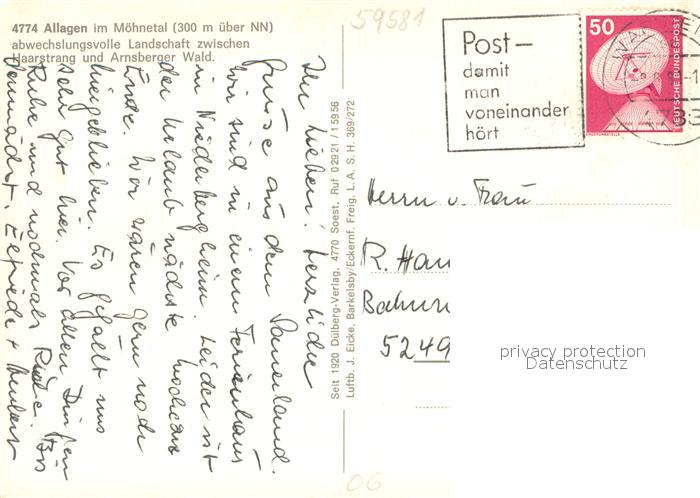 4774 Allagen im Möhnetal (300 m über NN)
abwechslungsvolle Landschaft zwischen
Haarstrang und Arnsberger Wald.
59581
Post-
damit
man
voneinander
hört
50
DEUTSCHE BUNDESPOST
Ihr Lieben! Herzliche
Grüsse aus dem Sauerland.
Wir sind in einem Ferienhaus
in Niederbergheim. Leider ist
der Urlaub nächste Woche zu
Ende. Wir wären gern noch
hiergeblieben. Es gefällt uns
sehr gut hier. Vor allen Dingen
Ruhe und nochmals Ruhe. Bis
demnächst, Elfriede +
Seit 1920 Dülberg-Verlag, 4770 Soest, Ruf 0 29 21 / 1 59 56
Luftb. J. Eicke, Barkelsby/Eckernf. Freig. L. A. S. H. 369/272
Herrn u. Frau
R. Han
5249
privacy protection
Datenschutz
06